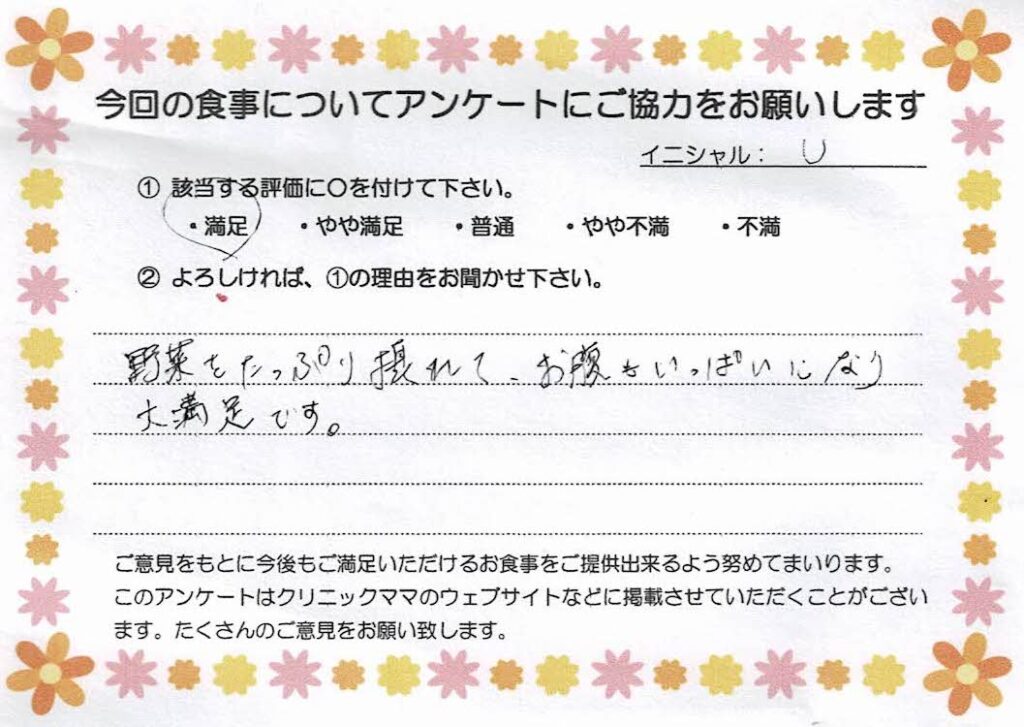 今回の食事についてアンケートにご協力をお願いします
イニシャル： U
① 該当する評価に〇を付けて下さい。
・満足 ・やや満足 ・普通 ・やや不満 ・不満
② よろしければ、①の理由をお聞かせ下さい。
野菜をたっぷり摂れて、お腹もいっぱいになり
大満足です。
ご意見をもとに今後もご満足いただけるお食事をご提供出来るよう努めてまいります。
このアンケートはクリニックママのウェブサイトなどに掲載させていただくことがござい
ます。たくさんのご意見をお願い致します。